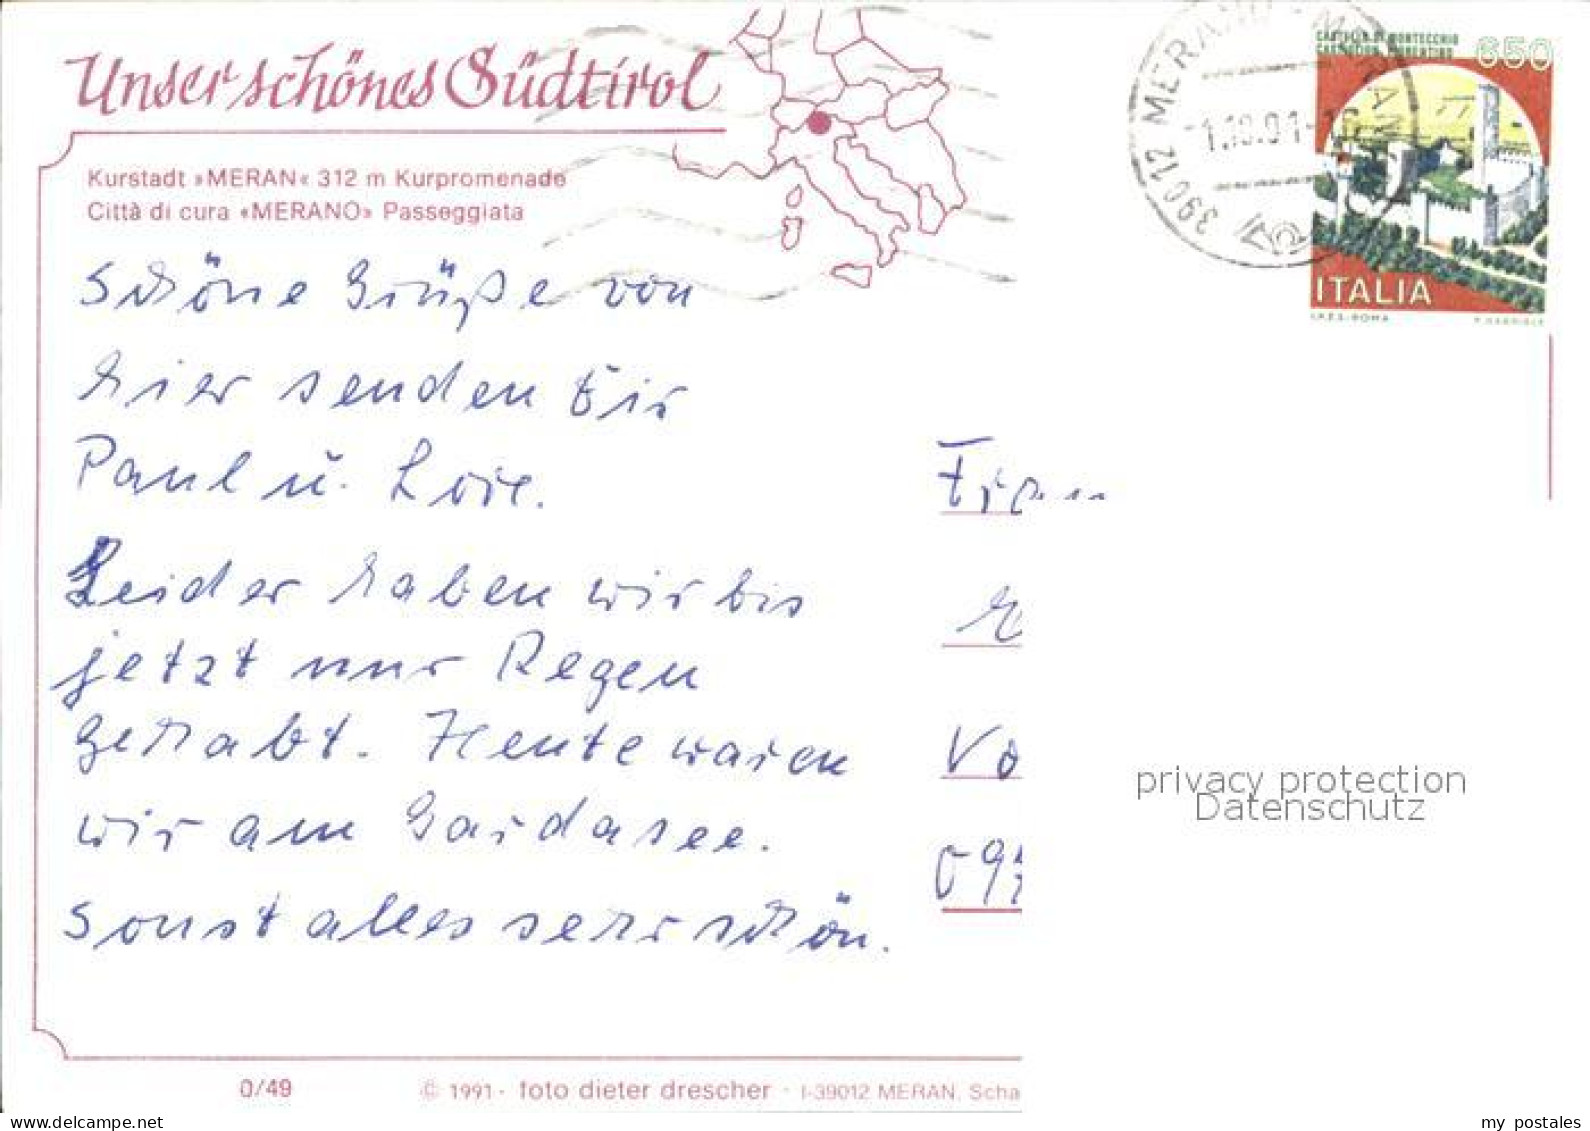 Unser schönes Südtirol
Kurstadt »MERAN« 312 m Kurpromenade
Città di cura «MERANO» Passeggiata
Schöne Grüße von
hier senden Dir
Paul u.
Leider haben wir bis
jetzt nur Regen
gehabt. Heute waren
wir am Gardasee.
Sonst alles sehr schön.
39012 MERANO - MERAN
CASTELLO DI MONTECCHIO
CASTIGLION FIORENTINO
650
ITALIA
I.P.Z.S.-ROMA
Vo
privacy protection
Datenschutz
0/49
© 1991 - foto dieter drescher - I-39012 MERAN, Scha
www.delcampe.net
my postales